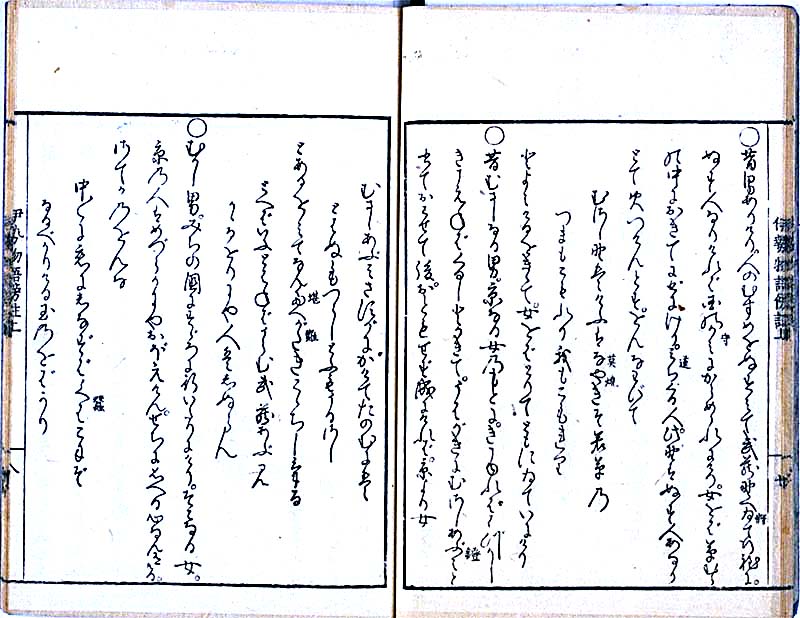 伊勢物語傍註上
○昔男ありけり。人のむすめをぬすみて武蔵野へゐて行ほどに。
ぬす人なりければ国のかみにからめられにけり。女をば草むら
の中におきてにげにけり。みちくる人。此野はぬす人あなり
とて火つけんとす。女わびて
むさし野はけふはなやきそ若草の
つまもこもれり我もこもれり
とよみけるをきゝて。女をばとりてともにゐていにけり
○昔むさしなる男。京なる女のもとに。きこゆればはづかし
きこえねばくるしとかきて。うはがきにむさしあぶみと
かきておこせて後。おともせず成にければ。京より女
むさしあぶみさすがにかけてたのむには
とはぬもつらしとふもうるさし
とあるをみてなんたへがたきこゝちしける
とへばいふとはねばうらむ武蔵あぶみ
かゝるをりにや人はしぬらん
○むかし男。みちの国にすゞろに行いたりにけり。そこなる女。
京の人はめづらかにやおぼえけん。せちに思へる心なん有ける。
さてかの女
中々に恋にしなずはくはこにぞ
なるべかりける玉のをばかり
伊勢物語傍註上